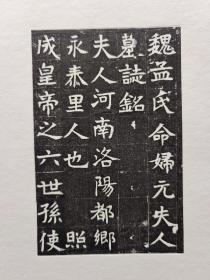 魏孟氏命婦元夫人
墓誌銘
夫人河南洛陽都鄉
永泰里人也　照
成皇帝之六世孫使